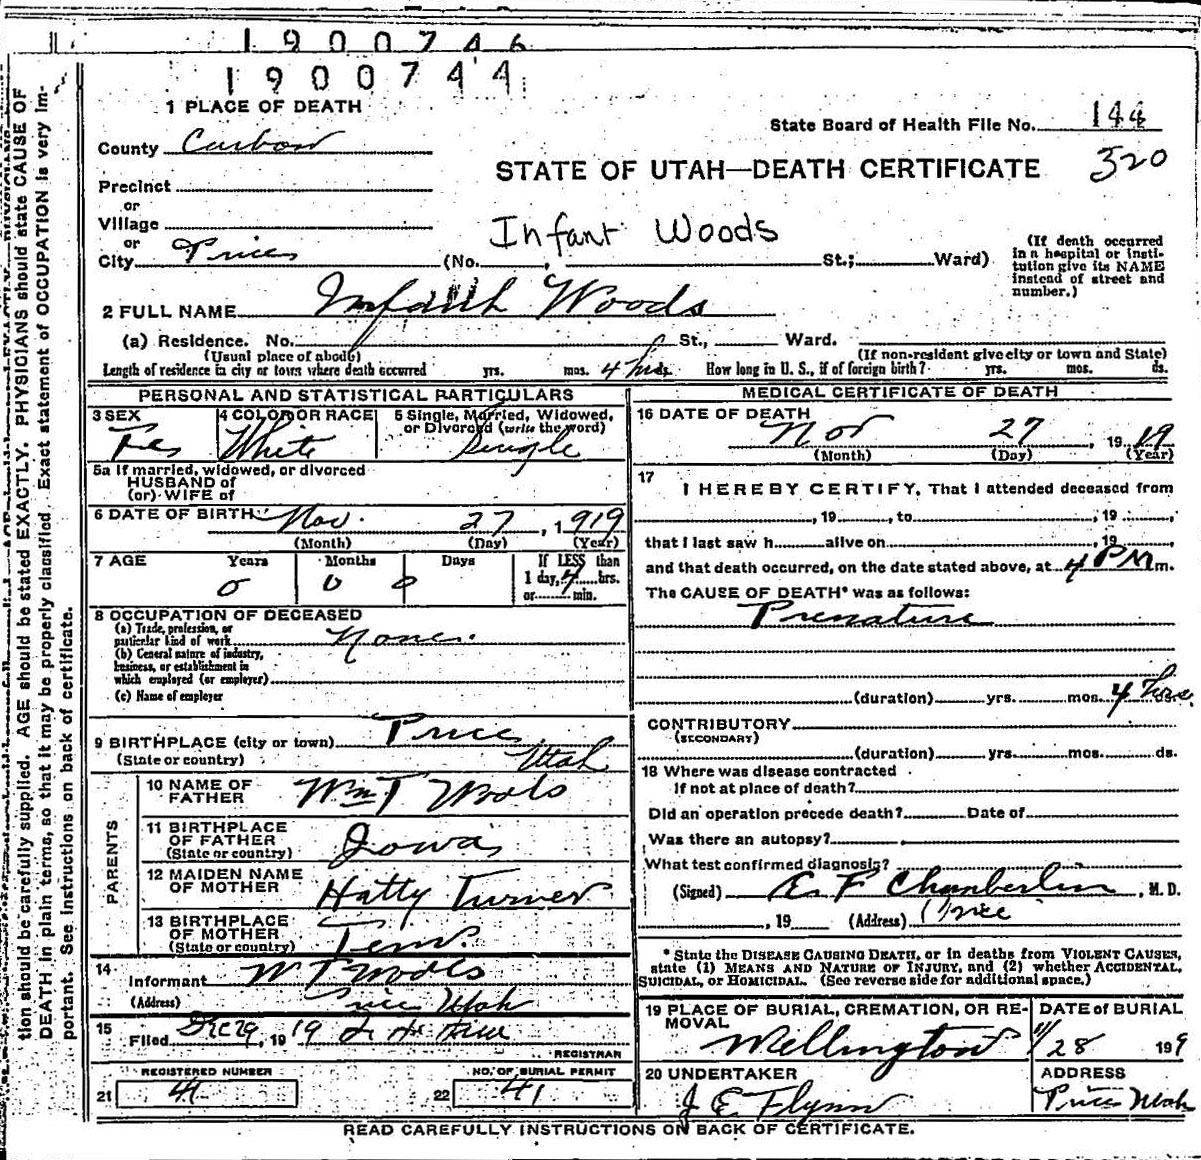 1900746
1900744
1 PLACE OF DEATH
State Board of Health File No. 144
County Carbon
STATE OF UTAH—DEATH CERTIFICATE 320
Precinct
or
Village
or
Infant Woods
City Price (No. , St.; Ward)
(If death occurred in a hospital or institution give its NAME instead of street and number.)
2 FULL NAME Infant Woods
(a) Residence. No. St., Ward.
(Usual place of abode) (If non-resident give city or town and State)
Length of residence in city or town where death occurred yrs. mos. 4 hrs. How long in U. S., if of foreign birth? yrs. mos. ds.
PERSONAL AND STATISTICAL PARTICULARS
3 SEX 4 COLOR OR RACE 5 Single, Married, Widowed, or Divorced (write the word)
Fe White Single
5a If married, widowed, or divorced
HUSBAND of
(or) WIFE of
6 DATE OF BIRTH Nov. 27, 1919
(Month) (Day) (Year)
7 AGE Years Months Days If LESS than
0 0 0 1 day, 4 hrs.
or min.
8 OCCUPATION OF DECEASED
(a) Trade, profession, or
particular kind of work None.
(b) General nature of industry,
business, or establishment in
which employed (or employer)
(c) Name of employer
9 BIRTHPLACE (city or town) Price
(State or country) Utah
PARENTS
10 NAME OF FATHER Wm T Woods
11 BIRTHPLACE OF FATHER (State or country) Iowa
12 MAIDEN NAME OF MOTHER Hatty Turner
13 BIRTHPLACE OF MOTHER (State or country) Tenn.
14 Informant W T Woods
(Address) Price Utah
15 Filed Dec 29, 1919
REGISTRAR
REGISTERED NUMBER NO. OF BURIAL PERMIT
21 41 22 41
MEDICAL CERTIFICATE OF DEATH
16 DATE OF DEATH
Nov 27, 1919
(Month) (Day) (Year)
17
I HEREBY CERTIFY, That I attended deceased from
, 19 , to , 19 ,
that I last saw h alive on , 19
and that death occurred, on the date stated above, at 4 PM m.
The CAUSE OF DEATH* was as follows:
Premature
(duration) yrs. mos. 4 hrs.
CONTRIBUTORY
(SECONDARY)
(duration) yrs. mos. ds.
18 Where was disease contracted
if not at place of death?
Did an operation precede death? Date of
Was there an autopsy?
What test confirmed diagnosis?
(Signed) E. F Chamberlin, M. D.
, 19 (Address) Price
* State the DISEASE CAUSING DEATH, or in deaths from VIOLENT CAUSES,
state (1) MEANS AND NATURE OF INJURY, and (2) whether ACCIDENTAL,
SUICIDAL, or HOMICIDAL. (See reverse side for additional space.)
19 PLACE OF BURIAL, CREMATION, OR REMOVAL DATE OF BURIAL
Wellington 11/28 1919
20 UNDERTAKER ADDRESS
J E Flynn Price Utah
READ CAREFULLY INSTRUCTIONS ON BACK OF CERTIFICATE.
tion should be carefully supplied. AGE should be stated EXACTLY. PHYSICIANS should state CAUSE OF
DEATH in plain terms, so that it may be properly classified. Exact statement of OCCUPATION is very im-
portant. See instructions on back of certificate.